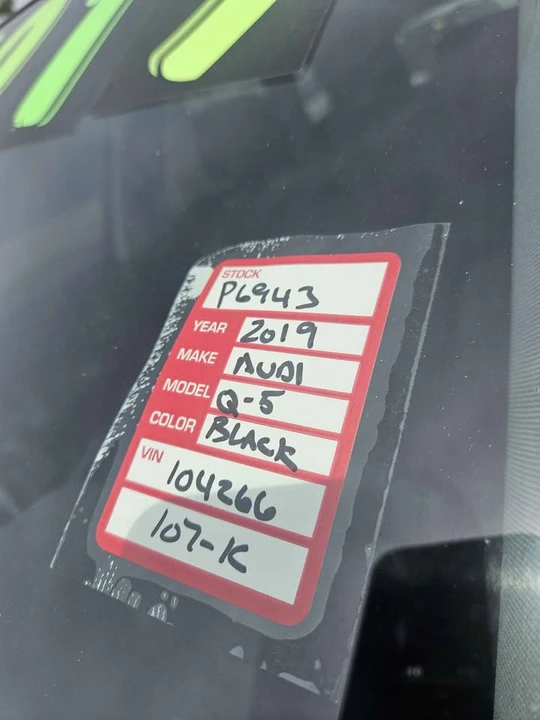 STOCK
P6943
YEAR 2019
MAKE AUDI
MODEL Q-5
COLOR BLACK
VIN 104266
107-K